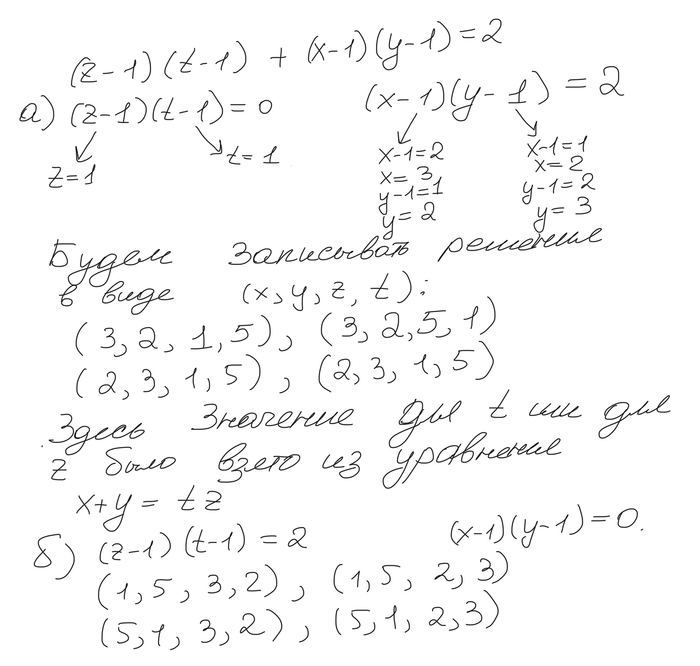 (z-1)(t-1) + (x-1)(y-1)=2
а) (z-1)(t-1)=0 (x-1)(y-1)=2
z=1 t=1 x-1=2 x-1=1
x=3 x=2
y-1=1 y-1=2
y=2 y=3
Будем записывать решения
в виде (x,y,z,t):
(3,2,1,5), (3,2,5,1)
(2,3,1,5), (2,3,1,5)
Здесь значение для t или для
z было взето из уравнения
x+y = tz
б) (z-1)(t-1)=2 (x-1)(y-1)=0.
(1,5,3,2), (1,5,2,3)
(5,1,3,2), (5,1,2,3)